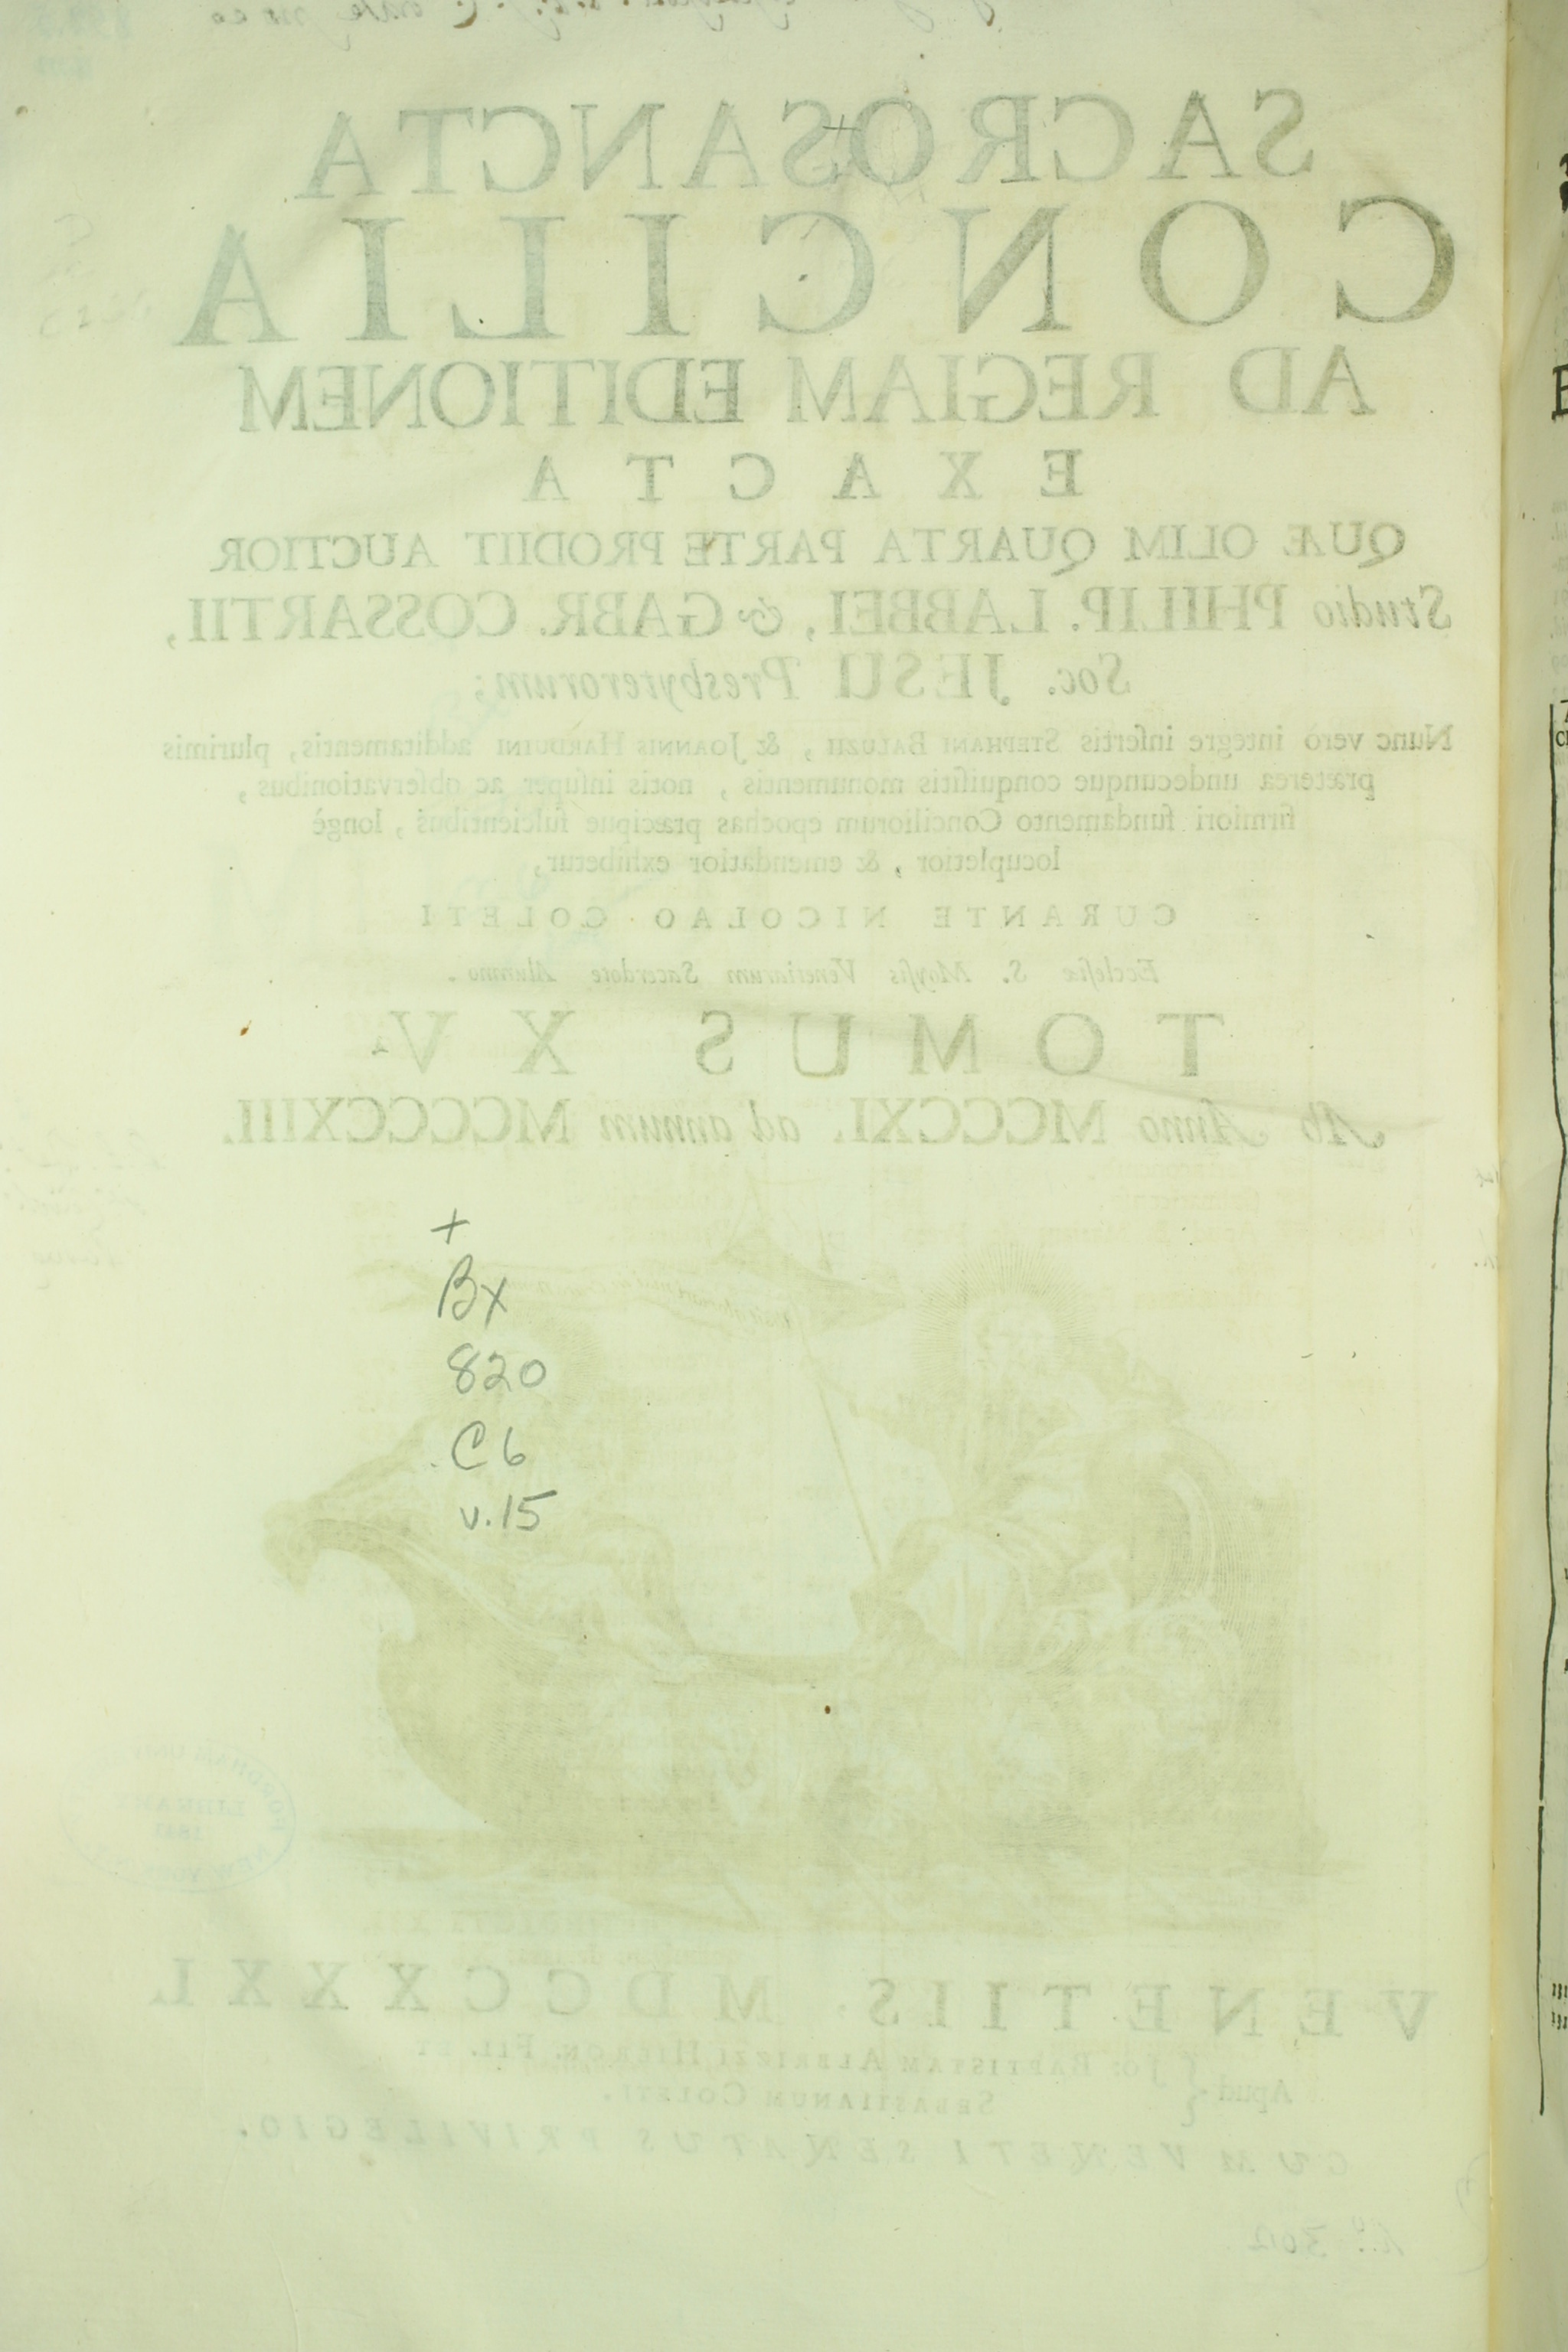 SACROSANCTA
CONCILIA
AD REGIAM EDITIONEM
EXACTA
QUÆ OLIM QUARTA PARTE PRODIIT AUCTIOR
Studio PHILIP. LABBEI, & GABR. COSSARTII,
Soc. JESU Presbyterorum;
Nunc verò integre insertis STEPHANI BALUZII, & JOANNIS HARDUINI additamentis, plurimis
præterea undecunque conquisitis monumentis, notis insuper ac observationibus,
firmiori fundamento Conciliorum epochas præcipue fulcientibus, longè
locupletior, & emendatior exhibetur,
CURANTE NICOLAO COLETI
Ecclesiæ S. Moysis Venetiarum Sacerdote Alumno.
TOMUS XV
Ab Anno MCCCXI. ad annum MCCCCXIII.
+
BX
820
C6
v.15
VENETIIS MDCCXXXI.
Apud { Jo: BAPTISTAM ALBRIZZI HIERON. FIL. ET
SEBASTIANUM COLETI.
CUM VENETI SENATUS PRIVILEGIO.